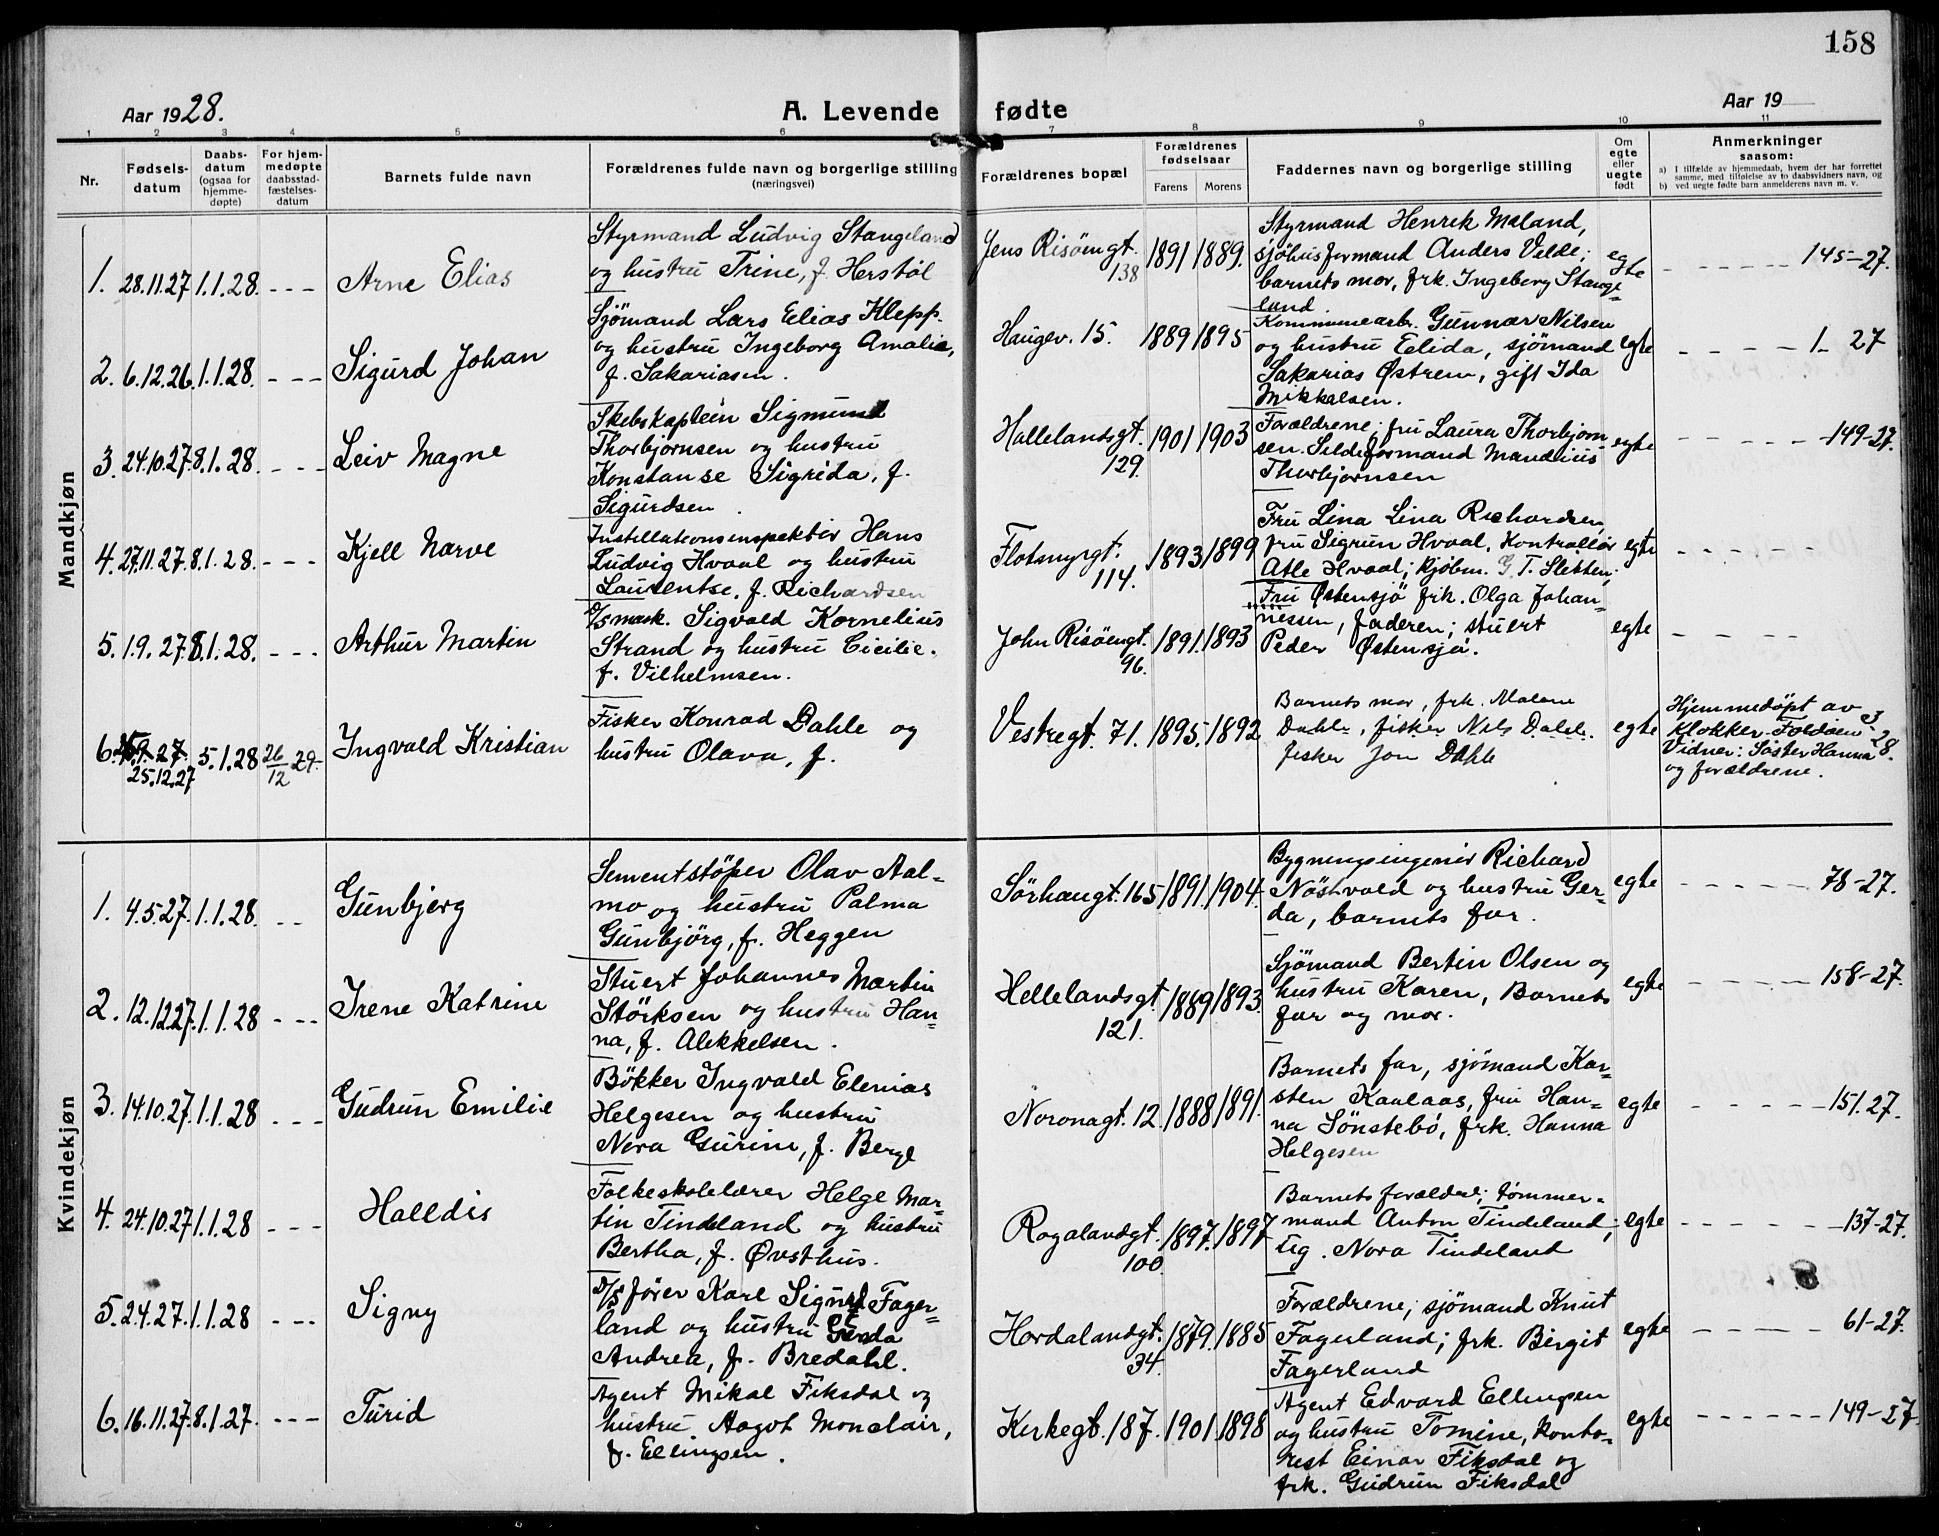 158
Aar 1928. A. Levende fødte Aar 19
1 2 3 4 5 6 7 8 9 10 11
Nr.
Fødsels-
datum
Daabs-
datum
(ogsaa for
hjemme-
døpte)
For hjem-
medøpte
daabsstad-
fæstelses-
datum
Barnets fulde navn
Forældrenes fulde navn og borgerlige stilling
(næringsvei)
Forældrenes bopæl
Forældrenes
fødselsaar
Farens Morens
Faddernes navn og borgerlige stilling
Om
egte
eller
uegte
født
Anmerkninger
saasom:
a) I tilfælde av hjemmedaab, hvem der har forrettet
samme, med tilføielse av to daabsvidners navn, og
b) ved uegte fødte barn anmelderens navn m. v.
Mandkjøn
1. 28.11.27 1.1.28. - - - Arne Elias
Styrmand Ludvig Stangeland
og hustru Trine, f. Herstøl
Jens Risöengt.
138
1891 1889.
Styrmand Henrik Mæland,
sjöhusformand Anders Velde;
barnets mor, frk. Ingeborg Stange-
land
egte
145-27.
2. 6.12.26 1.1.28. - - - Sigurd Johan
Sjömand Lars Elias Klepp
og hustru Ingeborg Amalie,
f. Sakariasen.
Haugev. 15. 1889 1895
Kommunearb. Gunnar Nilsen
og hustru Elida, sjömand
Sakarias Østrem, gift Ida
Mikkelsen.
egte
1- 27
3. 24.10.27 8.1.28. - - - Leiv Magne
Skibskaptein Sigmund
Thorbjörnsen og hustru
Konstanse Sigrida, f.
Sigurdsen
Hallelandsgt.
129.
1901 1903
Forældrene; fru Laura Thorbjörn
sen. Sildeformand Mandius
Thorbjörnsen
egte
149-27.
4. 27.11.27. 8.1.28. - - - Kjell Narve
Instillationsinspektör Hans
Ludvig Hvaal og hustru
Laurentse, f. Richardsen
Flotmyrgt.
114.
1893 1899
Fru Lina Lina Richardsen
fru Sigrun Hvaal, Kontrollör
Atle Hvaal; kjöbm. G. T. Sletten;
egte
5. 1.9.27. 8.1.28. - - - Arthur Martin
D/S mask. Sigvald Kornelius
Strand og hustru Cicilie.
f. Vilhelmsen.
John Risöengt.
96.
1891. 1893
Fru Östensjö frk. Olga Johan-
nessen, faderen; stuert
Peder Østensjö.
egte
6. 25.12.27 5.1.28 26/12 29. Ingvald Kristian
Fisker Konrad Dahle og
hustru Olava, f.
Vestregt. 71. 1895. 1892
Barnets mor, frk. Malene
Dahle, fisker Nils Dahle.
fisker Jon Dahle
egte
Hjemmedöpt av 3
Klokker Foldöen 28.
Vidner: Söster Hanna
og forældrene.
Kvindekjøn
1. 4.5.27. 1.1.28. - - Gunbjerg
Sementstöper Olav Aal-
mo og hustru Palma
Gunbjörg, f. Heggen
Sörhaugt. 165 1891. 1904.
Bygningsingeniör Richard
Nöstvold og hustru Ger-
da, barnets far.
egte
78-27.
2. 12.12.27. 1.1.28 - - - Irene Katrine
Stuert Johannes Martin
Störksen og hustru Han-
na, f. Alekkelsen.
Hellelandsgt.
121.
1889 1893.
Sjömand Bertin Olsen og
hustru Karen, Barnets
far og mor.
egte
158-27.
3. 14.10.27. 1.1.28 - - - Gudrun Emilie
Bökker Ingvald Elenias
Helgesen og hustru
Nora Gurine, f. Berge
Noronagt. 12. 1888 1891.
Barnets far, sjömand Kar-
sten Kaalaas, fru Han-
na Sönstebö, frk. Hanna
Helgesen
egte
151.27.
4. 24.10.27 1.1.28 - - - Halldis
Folkeskolelærer Helge Mar-
tin Tindeland og hustru
Bertha, f. Øvsthus.
Rogalandgt.
100.
1897. 1897
Barnets forældre; tømmer-
mand Anton Tindeland;
ug. Nora Tindeland
egte
137-27.
5. 2.4.27. 1.1.28 - - - Signy
D/S förer Karl Sigurd Fager-
land og hustru Gerda
Andrea, f. Bredahl.
Hordalandgt.
34.
1879. 1885
Forældrene; sjömand Knut
Fagerland; frk. Birgit
Fagerland
egte
61-27.
6. 16.11.27. 8.1.27. - - - Turid
Agent Mikal Fiksdal og
hustru Aagot Monclair,
f. Ellingsen.
Kirkegt. 187. 1901. 1898
Agent Edvard Ellingsen
og hustru Tomine, konto-
rist Einar Fiksdal og
frk. Gudrun Fiksdal
egte
149-27.